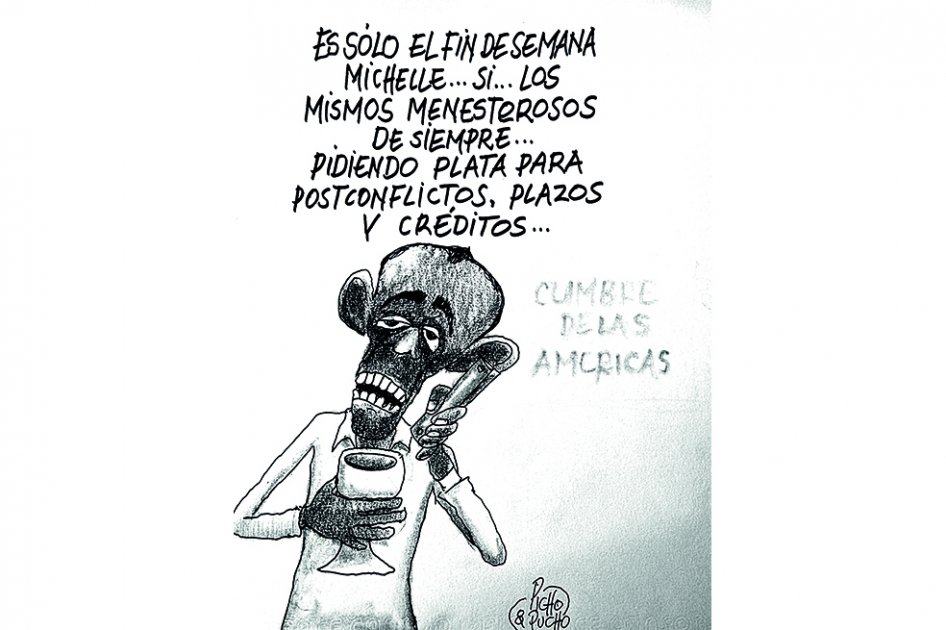 ES SÓLO EL FIN DE SEMANA
MICHELLE... SI... LOS
MISMOS MENESTEROSOS
DE SIEMPRE...
PIDIENDO PLATA PARA
POSTCONFLICTOS, PLAZOS
Y CRÉDITOS...
CUMBRE
DE LAS
AMERICAS
PICHO
& PUCHO